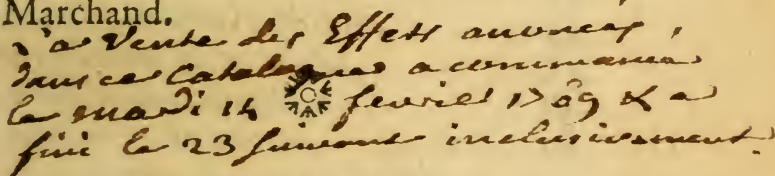 Marchand.
La Vente des Effets anoncés,
dans ce Catalogue a commencé
le mardi 14 fevrier 1769 & a
fini le 23 suivant inclusivement.